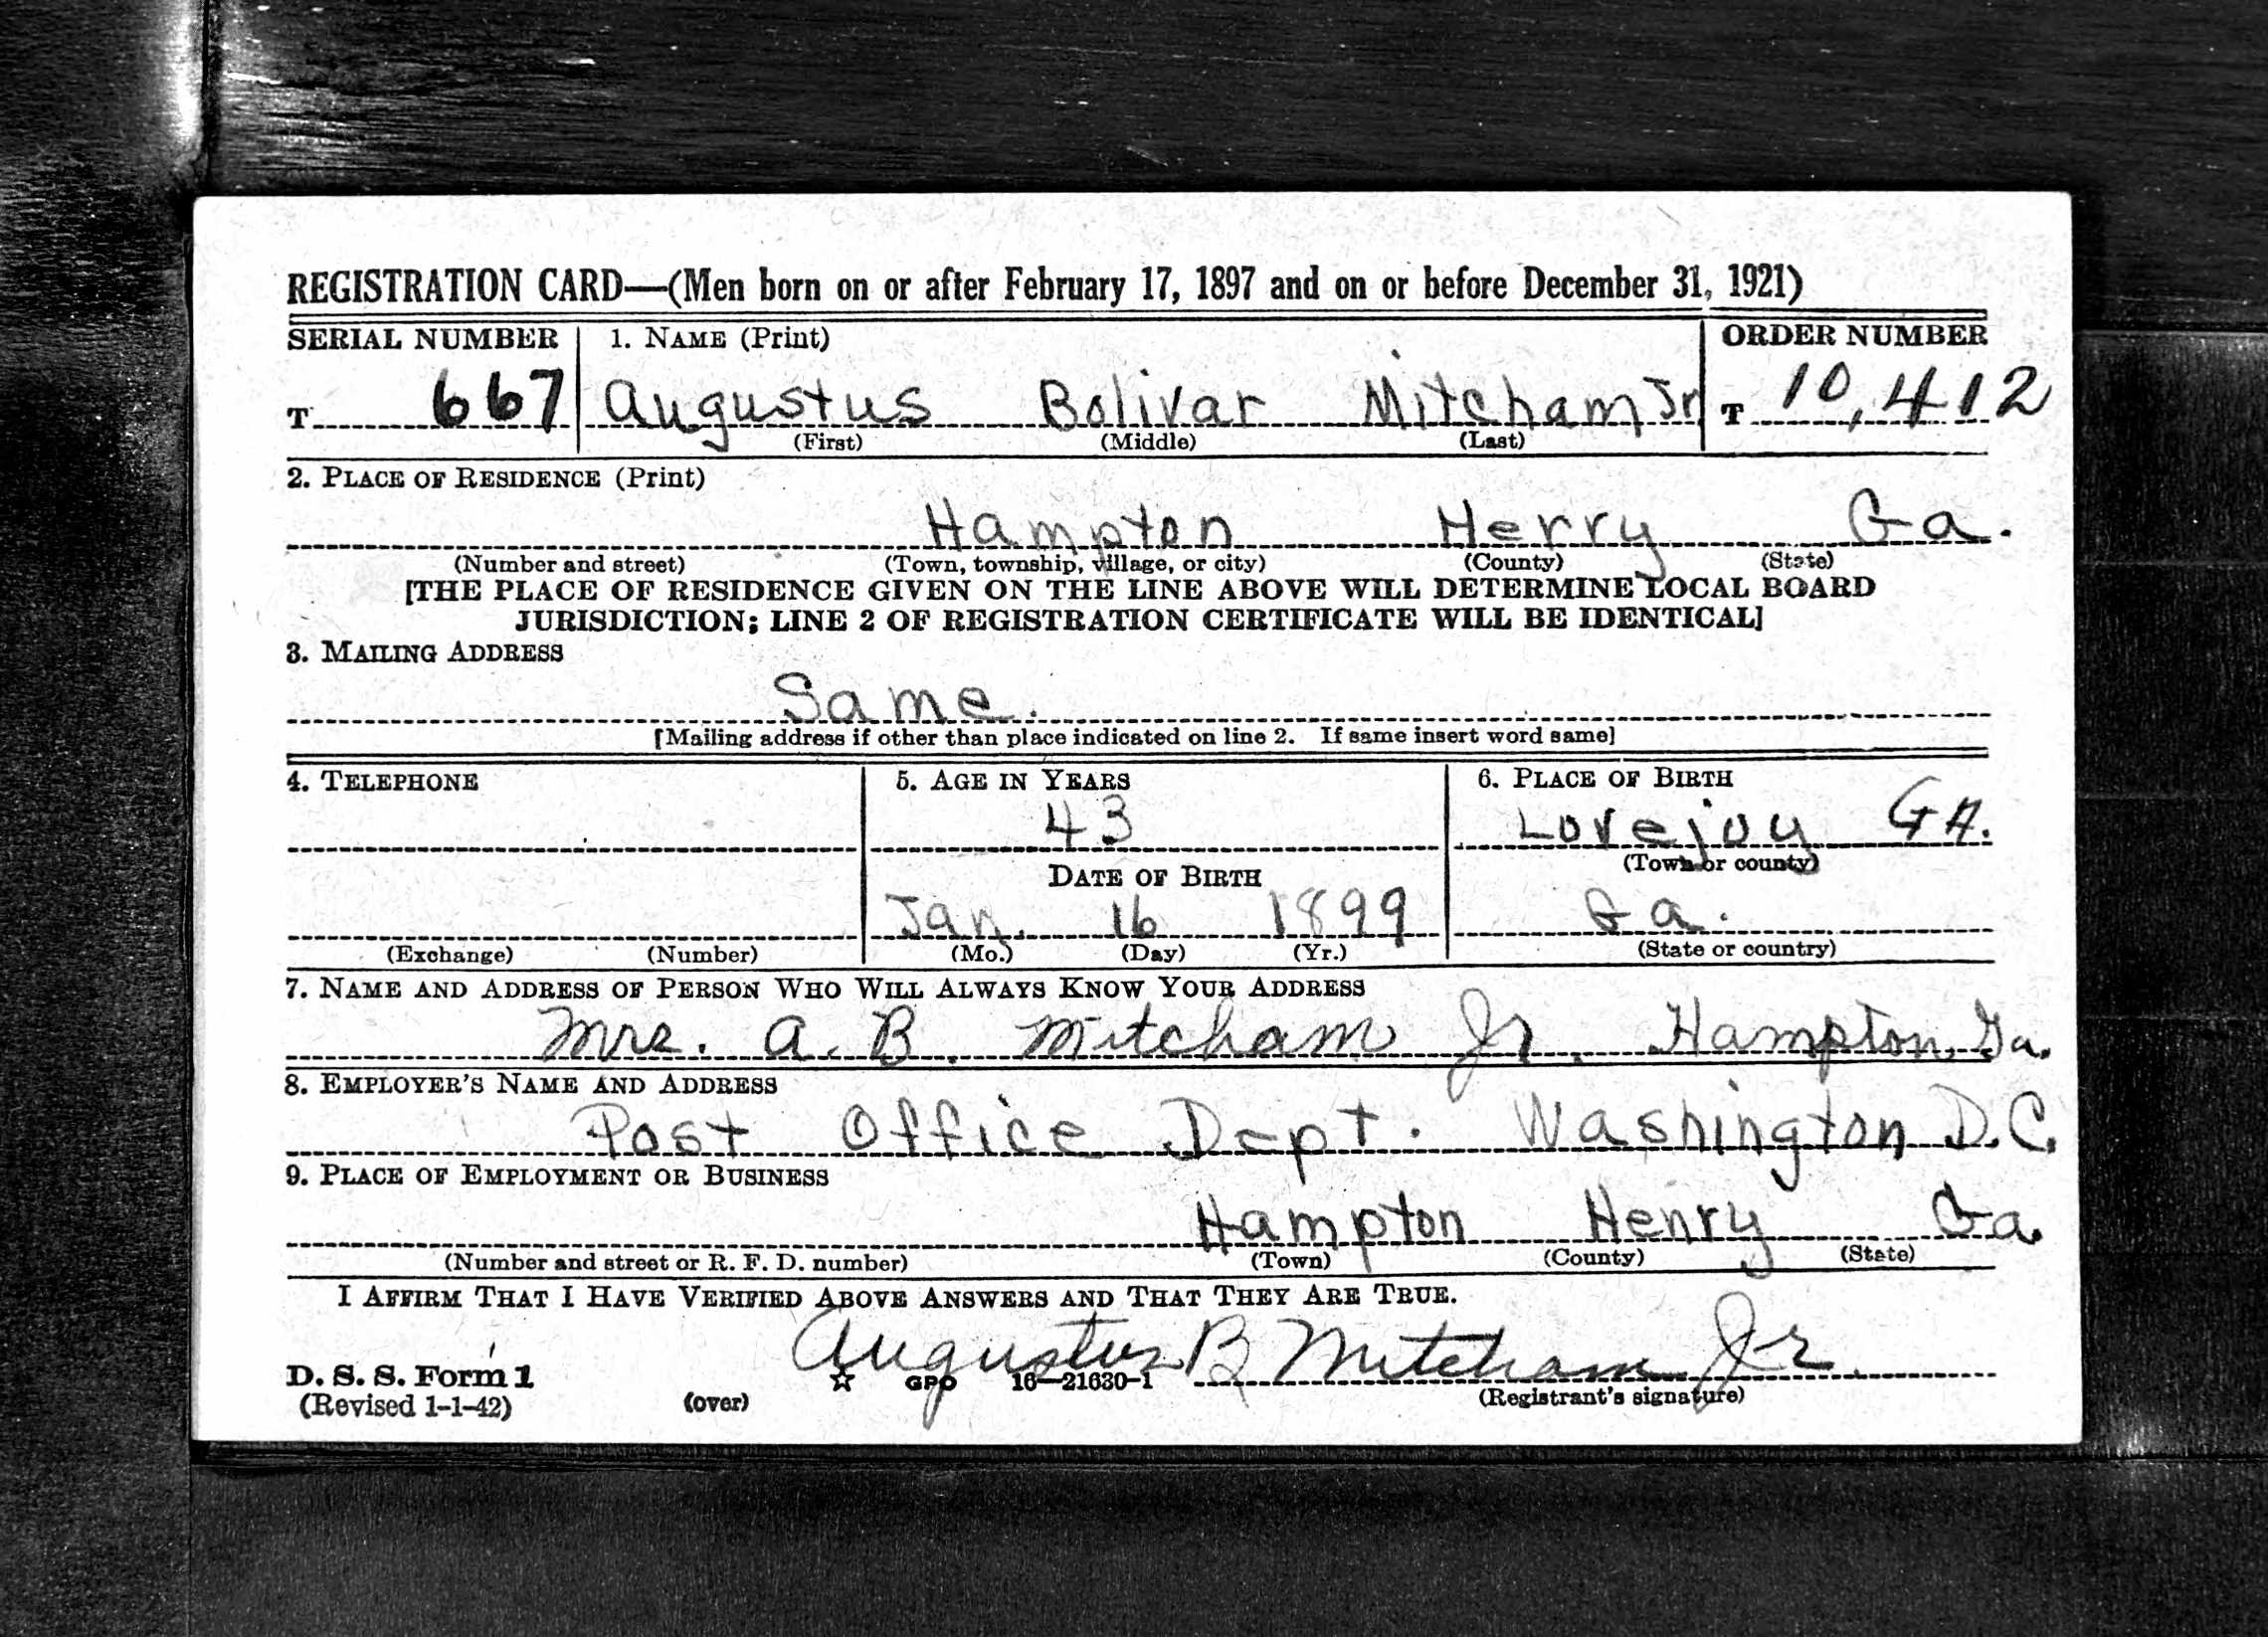 REGISTRATION CARD—(Men born on or after February 17, 1897 and on or before December 31, 1921)
SERIAL NUMBER 1. NAME (Print) ORDER NUMBER
T 667 Augustus Bolivar Mitcham Jr T 10,412
(First) (Middle) (Last)
2. PLACE OF RESIDENCE (Print)
Hampton Herry Ga.
(Number and street) (Town, township, village, or city) (County) (State)
[THE PLACE OF RESIDENCE GIVEN ON THE LINE ABOVE WILL DETERMINE LOCAL BOARD
JURISDICTION; LINE 2 OF REGISTRATION CERTIFICATE WILL BE IDENTICAL]
3. MAILING ADDRESS
Same.
[Mailing address if other than place indicated on line 2. If same insert word same]
4. TELEPHONE 5. AGE IN YEARS 6. PLACE OF BIRTH
43 Lovejoy GA.
DATE OF BIRTH (Town or county)
Jan. 16 1899 Ga.
(Exchange) (Number) (Mo.) (Day) (Yr.) (State or country)
7. NAME AND ADDRESS OF PERSON WHO WILL ALWAYS KNOW YOUR ADDRESS
Mrs. A. B. Mitcham Jr. Hampton, Ga.
8. EMPLOYER'S NAME AND ADDRESS
Post Office Dept. Washington D.C.
9. PLACE OF EMPLOYMENT OR BUSINESS
Hampton Henry Ga.
(Number and street or R. F. D. number) (Town) (County) (State)
I AFFIRM THAT I HAVE VERIFIED ABOVE ANSWERS AND THAT THEY ARE TRUE.
Augustus B Mitcham Jr.
D. S. S. Form 1 ☆ GPO 16—21630-1
(Revised 1-1-42) (over) (Registrant's signature)